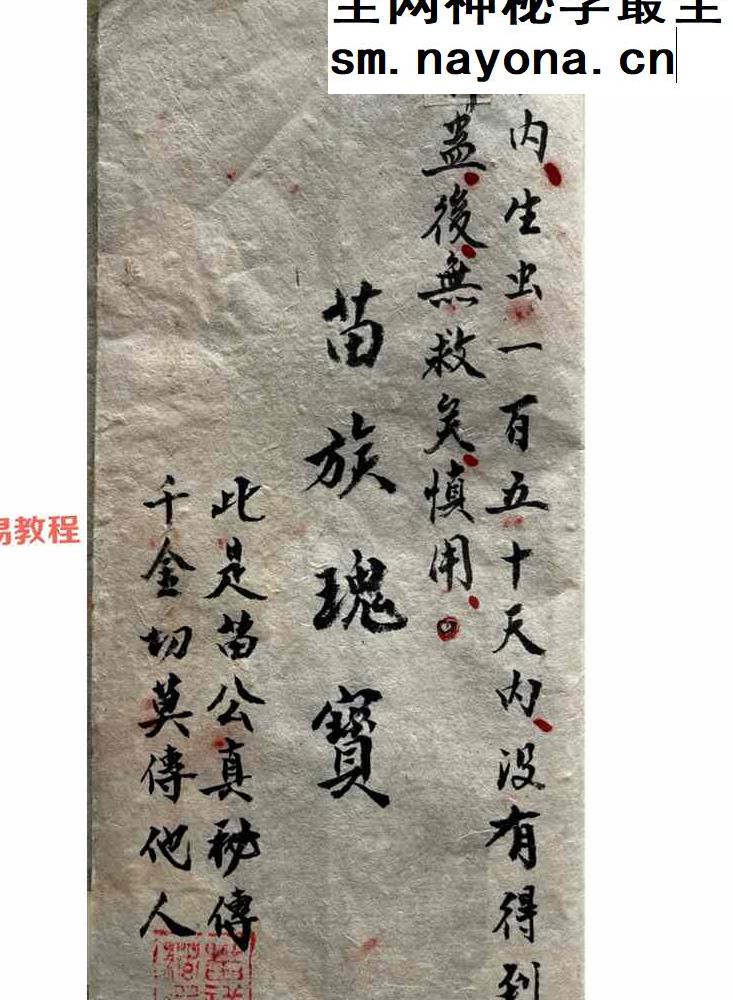 全网神秘学最全
sm.nayona.cn
内生虫一百五十天内没有得到
蛊後無救矣慎用。
苗族瑰寶
此是苗公真秘傳
千金切莫傳他人
易教程